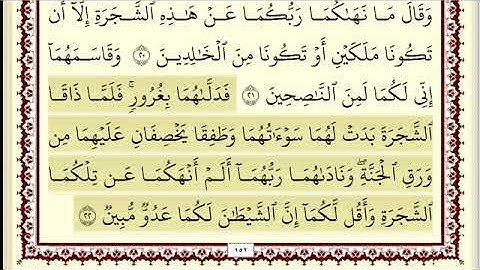 وَقَالَ مَا نَهَىٰكُمَا رَبُّكُمَا عَنْ هَٰذِهِ ٱلشَّجَرَةِ إِلَّآ أَن
تَكُونَا مَلَكَيْنِ أَوْ تَكُونَا مِنَ ٱلْخَٰلِدِينَ ٢٠ وَقَاسَمَهُمَآ
إِنِّى لَكُمَا لَمِنَ ٱلنَّٰصِحِينَ ٢١ فَدَلَّىٰهُمَا بِغُرُورٍۚ فَلَمَّا ذَاقَا
ٱلشَّجَرَةَ بَدَتْ لَهُمَا سَوْءَٰتُهُمَا وَطَفِقَا يَخْصِفَانِ عَلَيْهِمَا مِن
وَرَقِ ٱلْجَنَّةِۖ وَنَادَىٰهُمَا رَبُّهُمَآ أَلَمْ أَنْهَكُمَا عَن تِلْكُمَا
ٱلشَّجَرَةِ وَأَقُل لَّكُمَآ إِنَّ ٱلشَّيْطَٰنَ لَكُمَا عَدُوٌّ مُّبِينٌ ٢٢
١٥٢